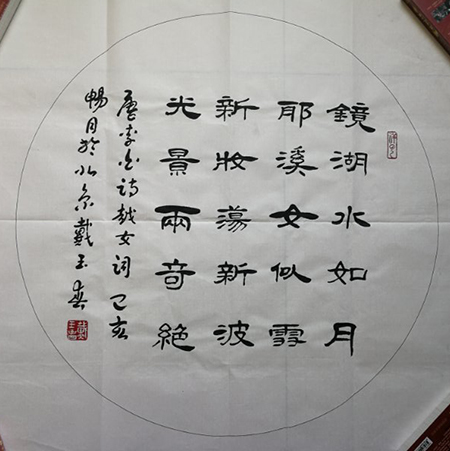 鏡湖水如月
耶溪女似雪
新妝蕩新波
光景兩奇絕
唐李白詩越女詞 己亥
暢月於北京戴玉春